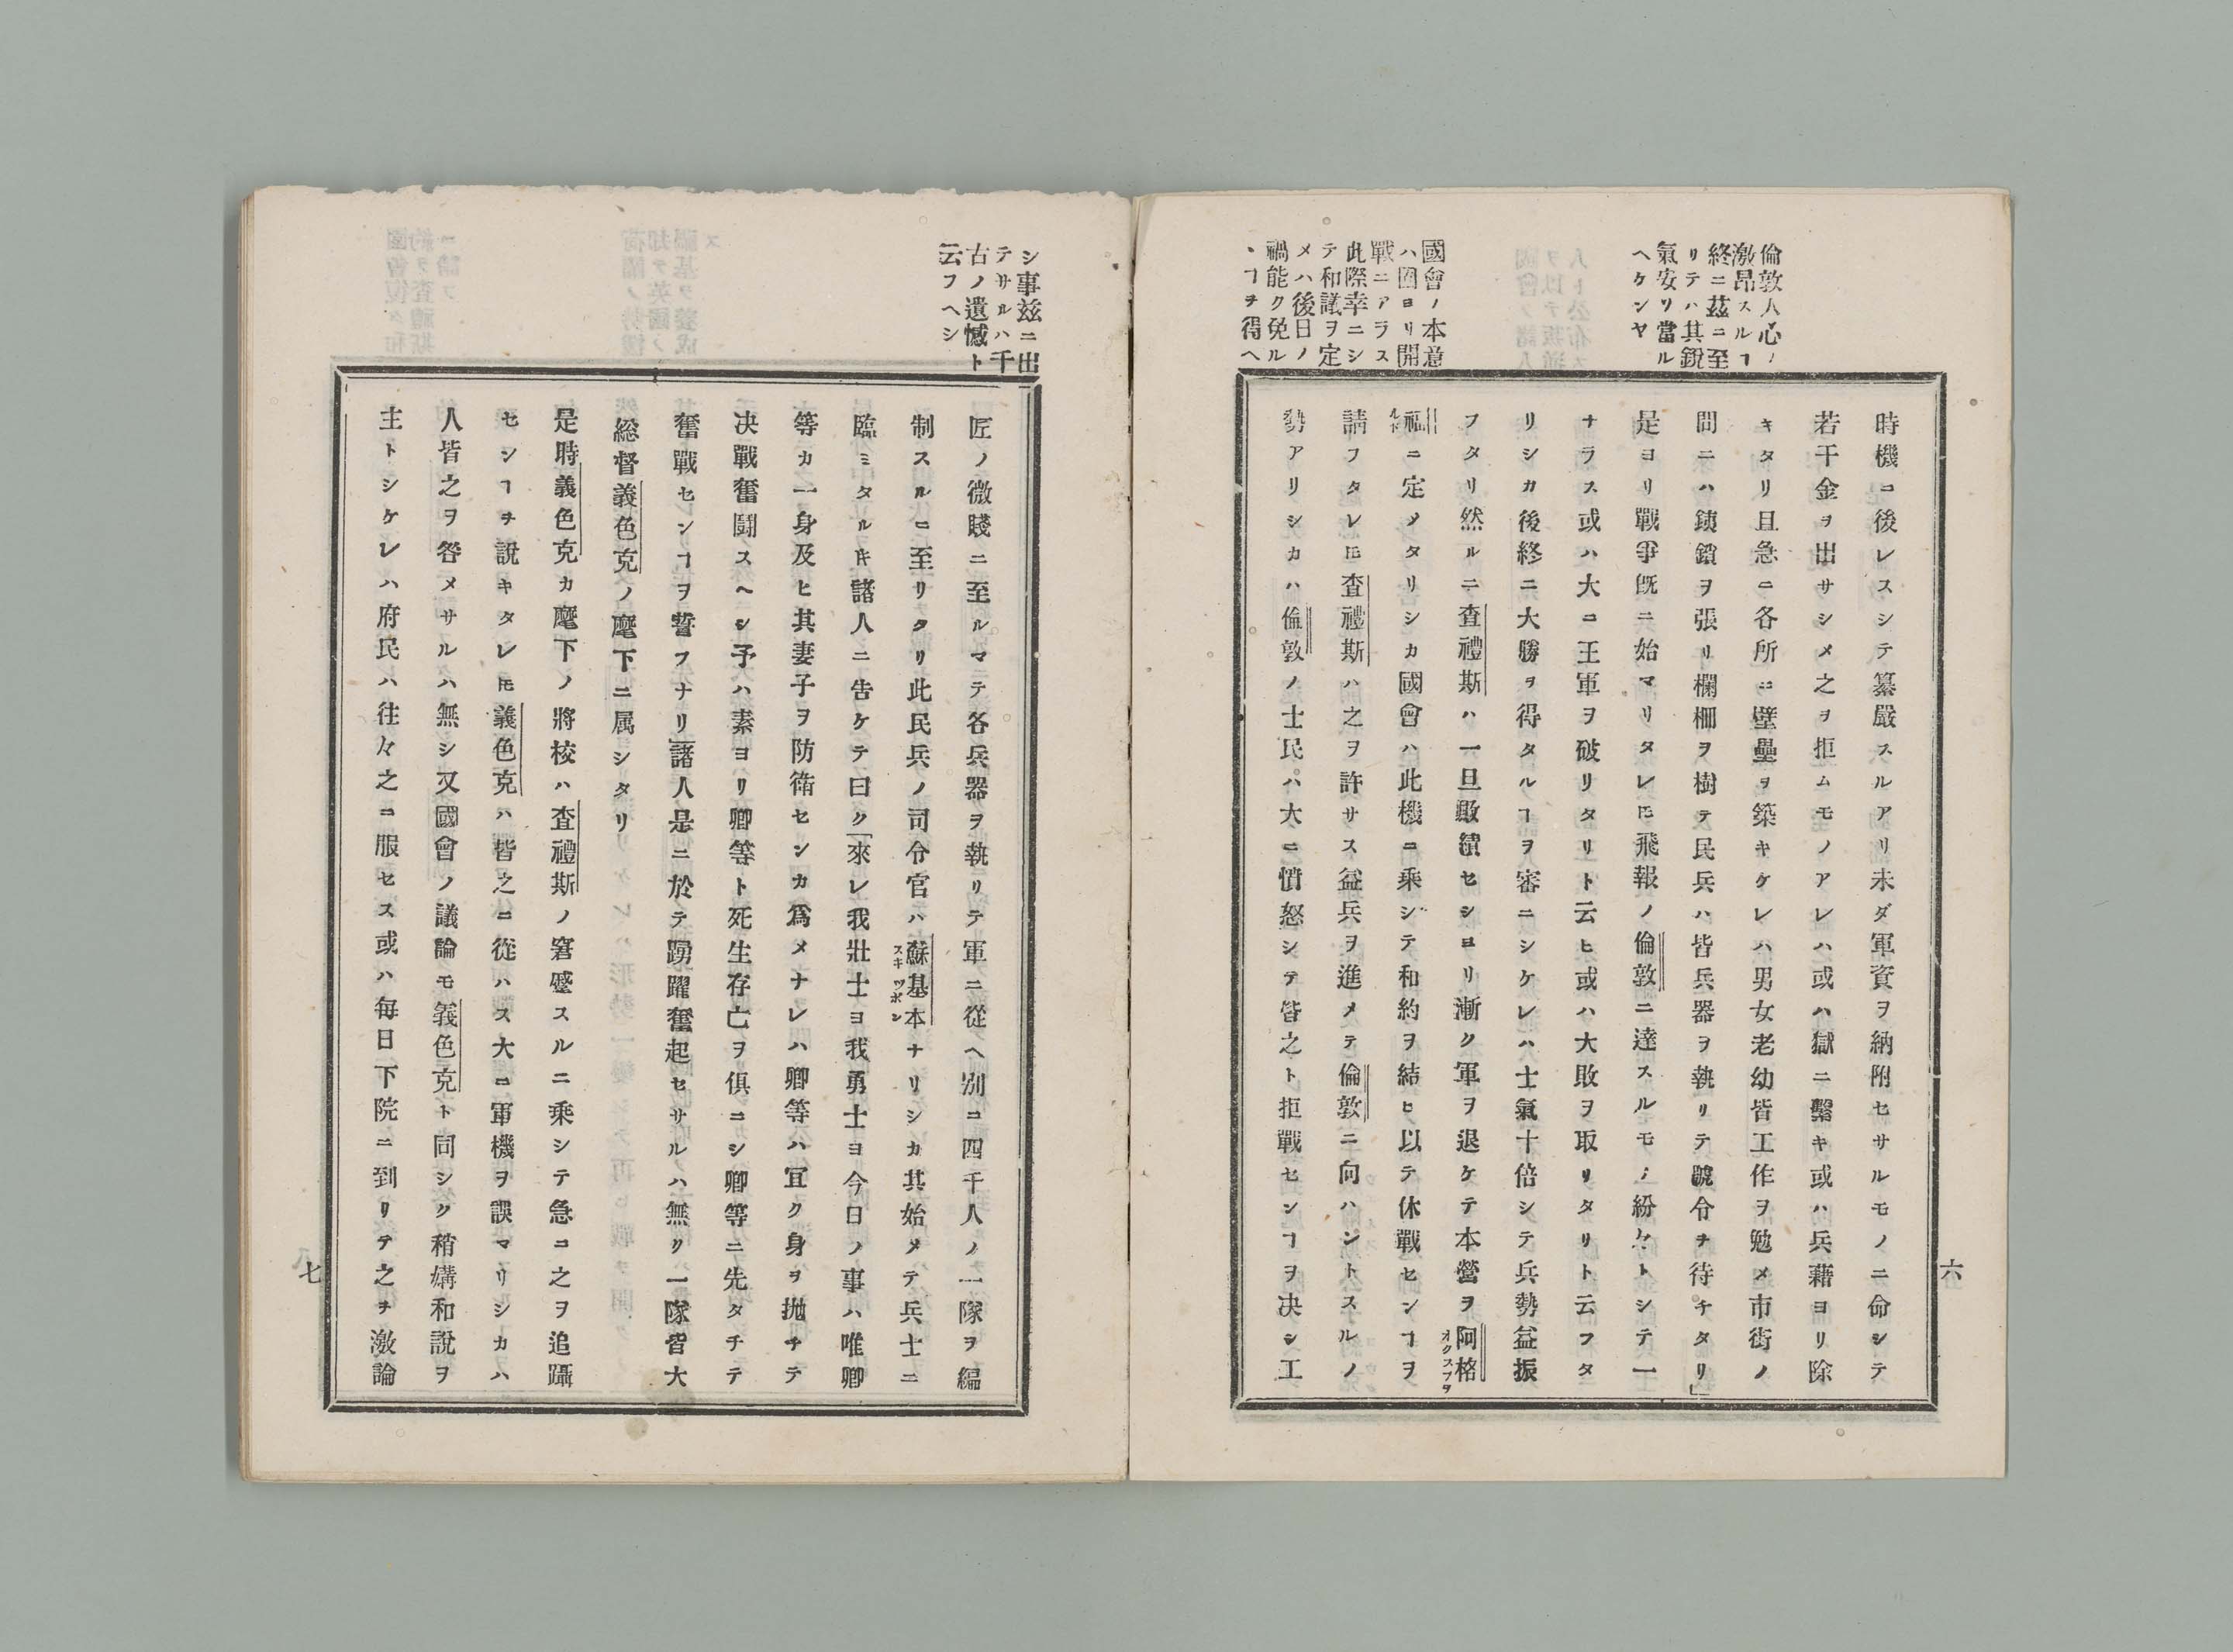 倫敦人心ノ
激昂スルヿ
終ニ茲ニ至
リテハ其銳
氣安リ當ル
ヘケンヤ
國會ノ本意
ハ固ヨリ開
戰ニアラス
此際幸ニシ
テ和議ヲ定
メハ後日ノ
禍能ク免ル
、ヿヲ得ヘ
時機ニ後レスシテ纂嚴スルアリ未ダ軍資ヲ納附セサルモノニ命シテ
若干金ヲ出サシメ之ヲ拒ムモノアレハ或ハ獄ニ繫キ或ハ兵藉ヨリ除
キタリ且急ニ各所ニ壁壘ヲ築キケレハ男女老幼皆工作ヲ勉メ市街ノ
問ニハ鐵鎖ヲ張リ欄柵ヲ樹テ民兵ハ皆兵器ヲ執リテ號令ヲ待チタリ」
是ヨリ戰爭既ニ始マリタレ𪜈飛報ノ倫敦ニ達スルモノ紛々トシテ一
ナラス或ハ大ニ王軍ヲ破リタリト云ヒ或ハ大敗ヲ取リタリト云フタ
リシカ後終ニ大勝ヲ得タルヿヲ審ニシケレハ士氣十倍シテ兵勢益振
フタリ然ルニ査禮斯ハ一旦敗績セシヨリ漸ク軍ヲ退ケテ本營ヲ阿格オクスフヲ
福ルドニ定メタリシカ國會ハ此機ニ乘シテ和約ヲ結ヒ以テ休戰センヿヲ
請フタレ𪜈査禮斯ハ之ヲ許サス益兵ヲ進メテ倫敦ニ向ハントスルノ
勢アリシカハ倫敦ノ士民ハ大ニ憤怒シテ皆之ト拒戰センヿヲ決シ工
六
シ事茲ニ出
テサルハ千
古ノ遺憾ト
云フヘシ
匠ノ微賤ニ至ルマテ各兵器ヲ執リテ軍ニ從ヘ別ニ四千人ノ一隊ヲ編
制スルニ至リタリ此民兵ノ司令官ハ蘇基本スキッポンナリシカ其始メテ兵士ニ
臨ミタル𪜈諸人ニ告ケテ曰ク「來レ我壯士ヨ我勇士ヨ今日ノ事ハ唯卿
等カ一身及ヒ其妻子ヲ防衛センカ爲メナラレハ卿等ハ宜ク身ヲ抛チテ
决戰奮鬪スヘシ予ハ素ヨリ卿等ト死生存亡ヲ俱ニシ卿等ニ先タチテ
奮戰センヿヲ誓フナリ」諸人是ニ於テ踴躍奮起セサルハ無ク一隊皆大
総督義色克ノ麾下ニ属シタリ
是時義色克カ麾下ノ將校ハ査禮斯ノ窘蹙スルニ乘シテ急ニ之ヲ追躡
センヿヲ說キタレ𪜈義色克ハ皆之ニ從ハス大ニ軍機ヲ誤マリシカハ
人皆之ヲ咎メサルハ無シ又國會ノ議論モ義色克ト同シク稍媾和說ヲ
主トシケレハ府民ハ往々之ニ服セス或ハ每日下院ニ到リテ之ヲ激論
七